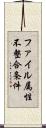 ファイル属性
不整合条件